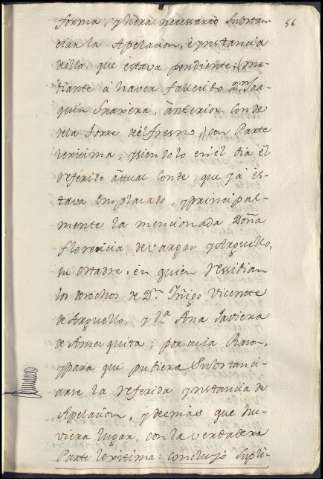 forma, y hera necesario substan
ciar la Apelacion, è ynstancia
della, que estava pendiente; me
diante à haver fallecido Dn. Joa
quin Guarena, anterior Conde
dela Torre del fresno, con Parte
lexitima; y siendolo en el dia el
referido actual Conde, que ya es
tava emplazado, y principal
mente la mencionada Doña
florencia de Vargas y Arguello,
su en quien residian
los derechos de Dn. Yñigo Vicente
de Arguello, y Da. Ana Javiera
de Amezquita; por cuia Razon,
y para que pudiera substanci
arse la referida ynstancia de
Apelacion, y demas que hu
viera lugar, con la verdadera
Parte lexitima: concluyó supli
56